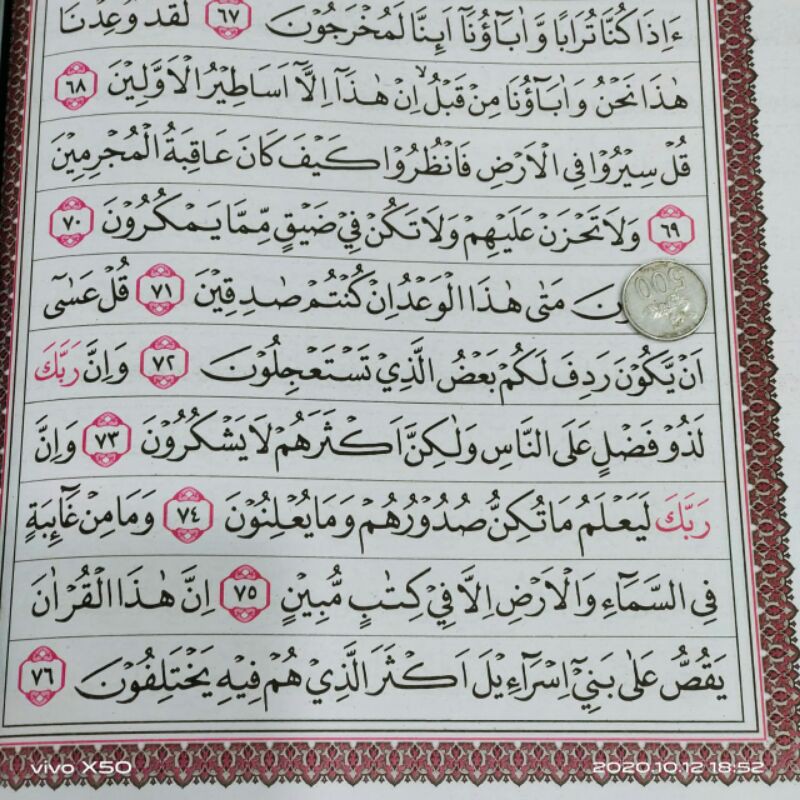 ءَاِذَا كُنَّا تُرَابًا وَّاٰبَآؤُنَآ اَىِٕنَّا لَمُخْرَجُوْنَ ٦٧ لَقَدْ وُعِدْنَا
هٰذَا نَحْنُ وَاٰبَآؤُنَا مِنْ قَبْلُ ۙ اِنْ هٰذَآ اِلَّآ اَسَاطِيْرُ الْاَوَّلِيْنَ ٦٨
قُلْ سِيْرُوْا فِى الْاَرْضِ فَانْظُرُوْا كَيْفَ كَانَ عَاقِبَةُ الْمُجْرِمِيْنَ
٦٩ وَلَا تَحْزَنْ عَلَيْهِمْ وَلَا تَكُنْ فِيْ ضَيْقٍ مِّمَّا يَمْكُرُوْنَ ٧٠
مَتٰى هٰذَا الْوَعْدُ اِنْ كُنْتُمْ صٰدِقِيْنَ ٧١ قُلْ عَسٰٓى
اَنْ يَّكُوْنَ رَدِفَ لَكُمْ بَعْضُ الَّذِيْ تَسْتَعْجِلُوْنَ ٧٢ وَاِنَّ رَبَّكَ
لَذُوْ فَضْلٍ عَلَى النَّاسِ وَلٰكِنَّ اَكْثَرَهُمْ لَا يَشْكُرُوْنَ ٧٣ وَاِنَّ
رَبَّكَ لَيَعْلَمُ مَا تُكِنُّ صُدُوْرُهُمْ وَمَا يُعْلِنُوْنَ ٧٤ وَمَا مِنْ غَاۤىِٕبَةٍ
فِى السَّمَاۤءِ وَالْاَرْضِ اِلَّا فِيْ كِتٰبٍ مُّبِيْنٍ ٧٥ اِنَّ هٰذَا الْقُرْاٰنَ
يَقُصُّ عَلٰى بَنِيْٓ اِسْرَاۤءِيْلَ اَكْثَرَ الَّذِيْ هُمْ فِيْهِ يَخْتَلِفُوْنَ ٧٦
500
vivo X50
2020.10.12 18:52